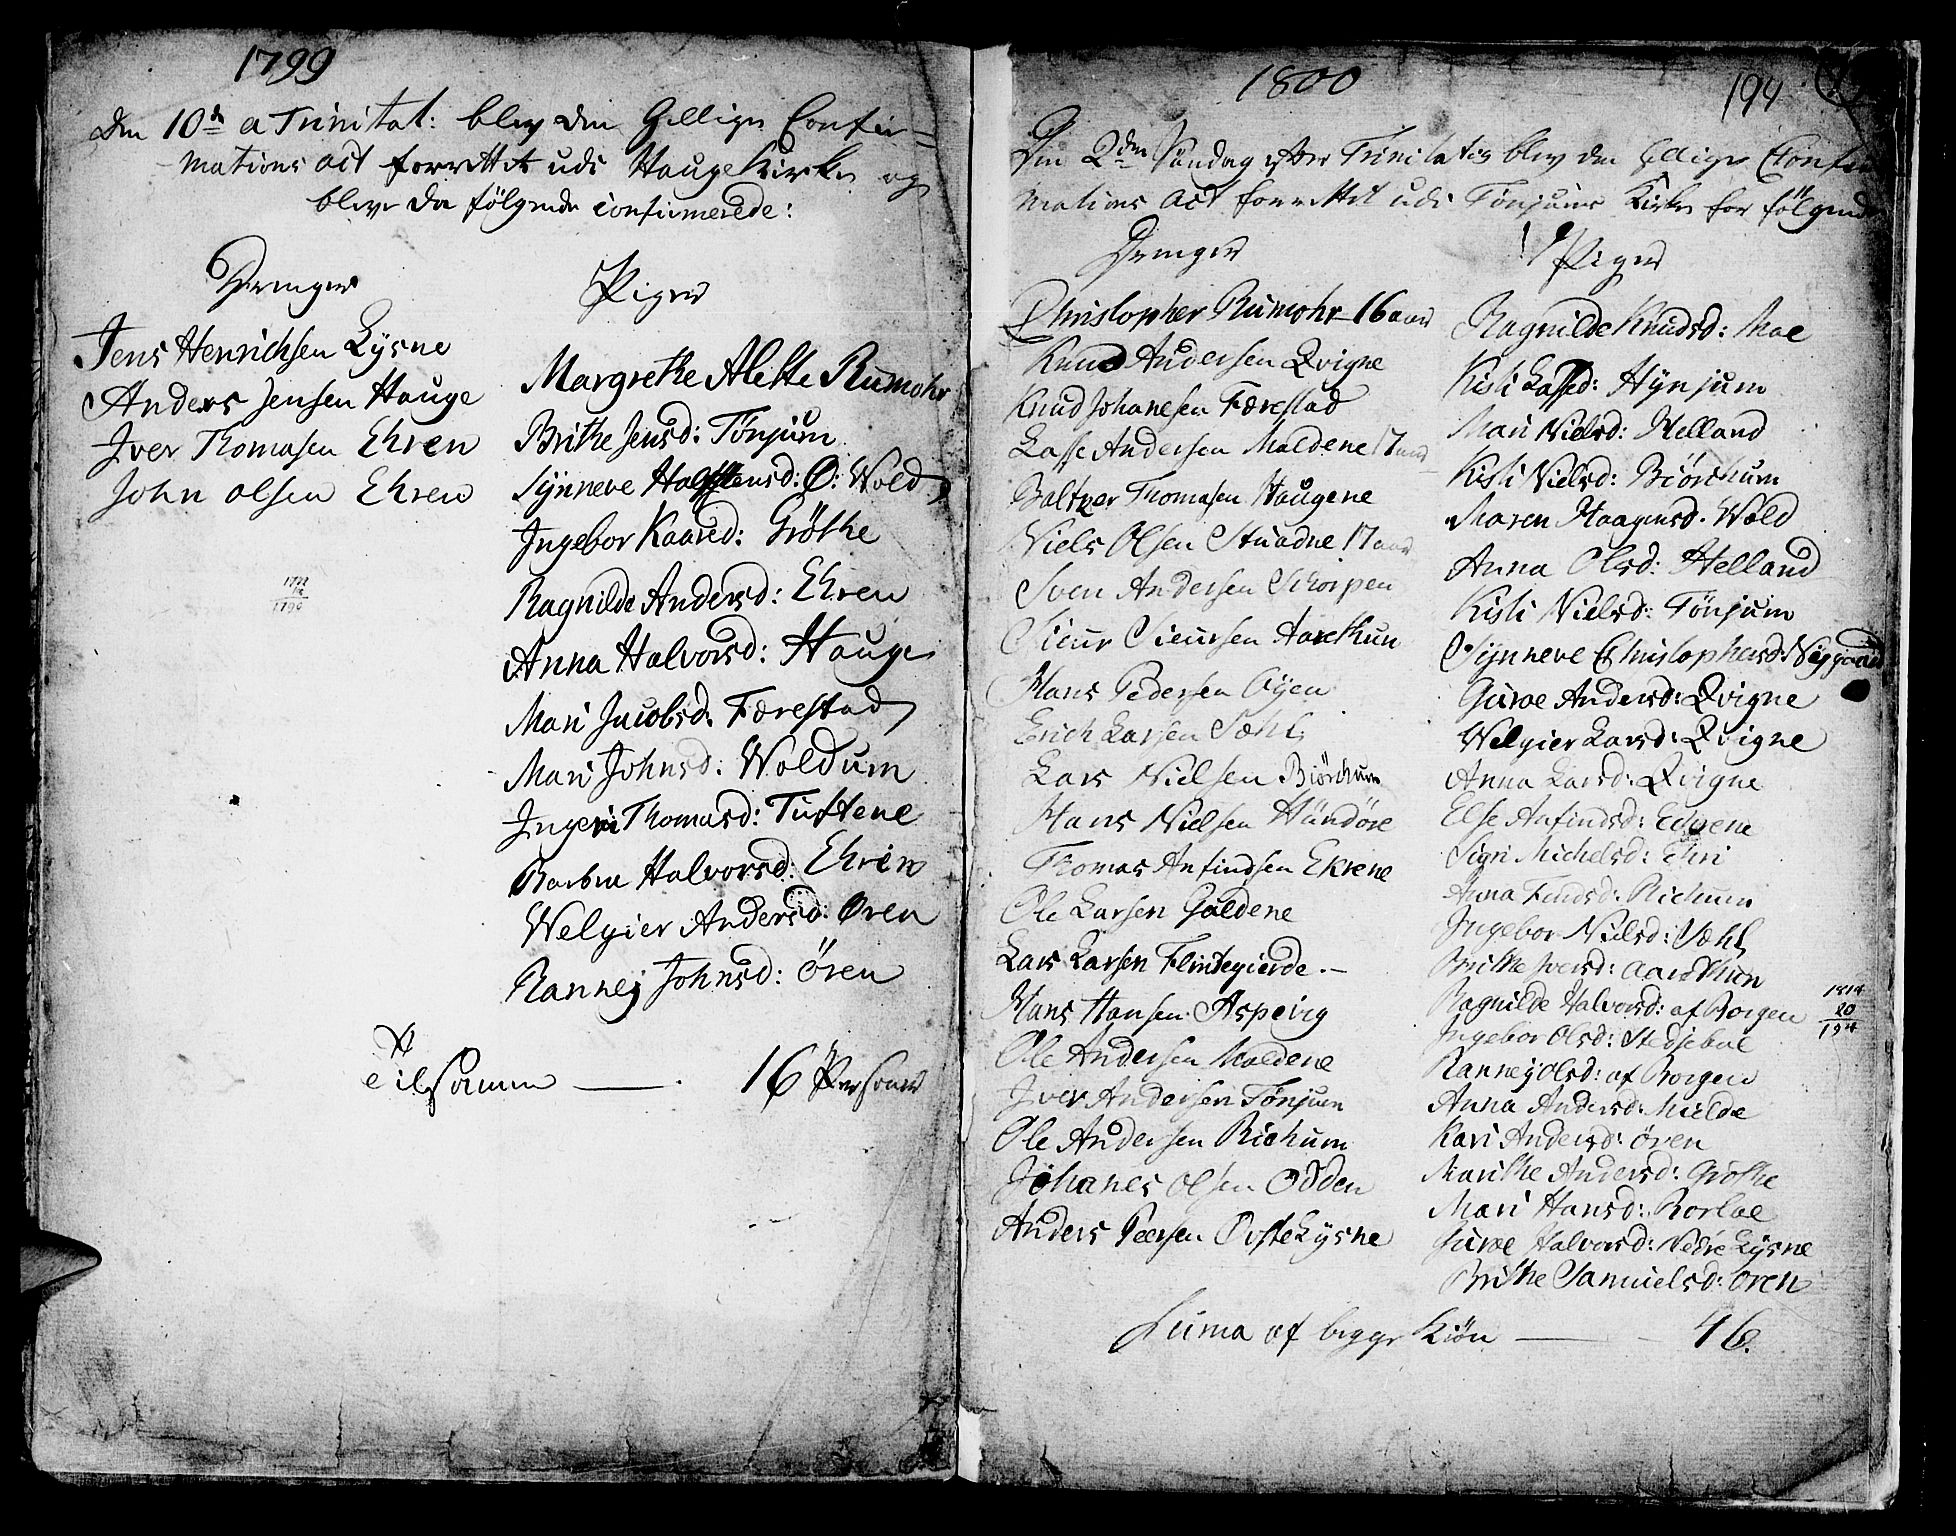 1799
Den 10de a Trinitat: blev den Hellige Confir=
mations act forrettet udi Hauge Kirke og
bleve da følgende confirmerede:
Drenger
Jens Henrichsen Lysne
Anders Jensen Hauge
Iver Thomasen Ehren
John olsen Ehren
Piger
Margrethe Alette Rumohr
Brithe Jensd: Tönjum
Synneve Halstensd: Ø: Wold
Ingebor Kaared: Gröthe
Ragnilde Andersd: Ehren
Anna Halvorsd: Hauge
Mari Jacobsd. Færestad
Mari Johnsd: Woldum
Ingeri Thomasd: Tuftene
Barbra Halvorsd: Ehren
Welgier Andersd: Øren
Rannej Johnsd: ören
Tilsamm — 16 Personer
1800
194
Den 2den Söndag efter Trinitatis blev den Hellige Confir
mations act forrettet udi Tönjums Kirke for fölgende
Drenger
Christopher Rumohr 16 aar
Knud Andersen Qvigne
Knud Johanesen Færestad
Lasse Andersen Moldene 17 aar
Baltzer Thomasen Haugene
Niels Olsen Stuadne 17 aar
Sven Andersen Schorpen
Siur Siursen Aarethun
Hans Pedersen Öyen
Erich Larsen Sæhl
Lars Nielsen Biörchum
Hans Nielsen Hundöre
Thomas Anfindsen Ekrene
Ole Larsen Galdene
Lars Larsen Flintegierde.—
Hans Hansen Aspevig
Ole Andersen Moldene
Iver Andersen Tönjum
Ole Andersen Richum
Johanes olsen Odden
Anders Peersen Øvste Lysne
Piger
Ragnilde Knudsd: Moe
Kisti Lassed: Hynjum
Mari Nielsd: Helland
Kisti Nielsd: Biörchum
Maren Haagensd. Wold
Anna Olsd: Helland
Kisti Nielsd: Tönjum
Synneve Christophersd: Nyygaard
Guroe Andersd: Qvigne
Welgier Larsd: Qvigne
Anna Larsd: Qvigne
Else Anfindsd:
Sigri Michelsd: Ehri
Anna Findsd: Richum
Ingebor Nielsd: Sæhl
Brithe Iversd: aardthun
Ragnilde Halvorsd: af Borgen
Ingebor Olsd: Stedjebal
Rannej Olsd: af Borgen
Anna Andersd: Mielde
Kari Andersd: ören
Marithe Andersd: Gröthe
Mari Hansd: Borlae
Guroe Halvorsd: Nedre Lysne
Brithe Samuelsd: ören
1814
20
194
Suma af begge Kiön — 46.